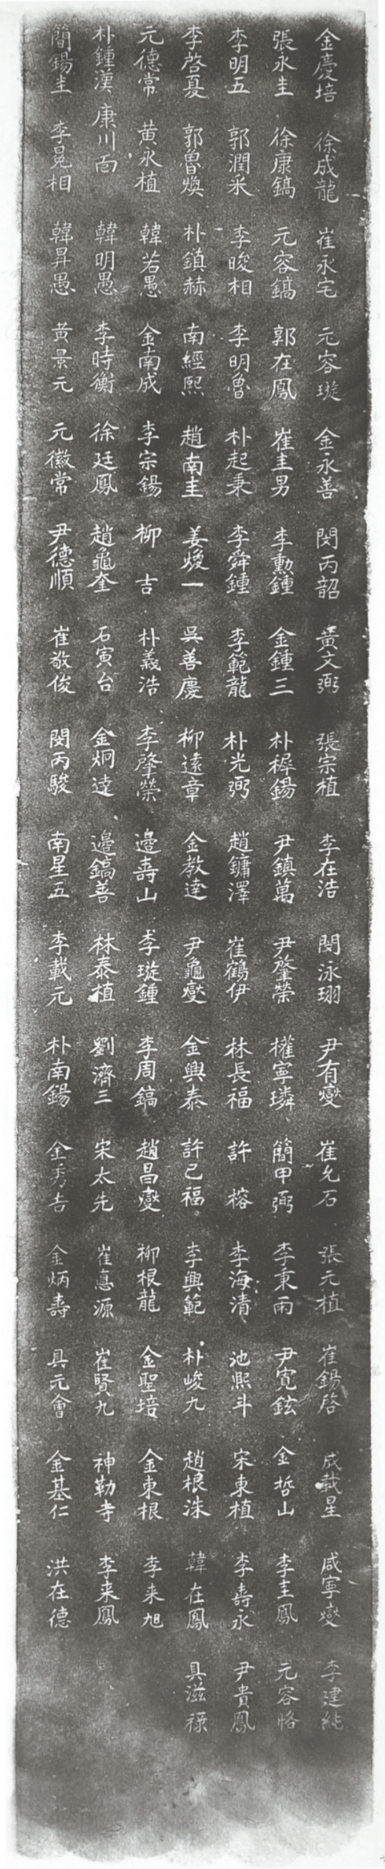 金慶培 徐成龍 崔永宅 元容璇 金永善 閔丙韶 黃文弼 張宗植 李在浩 閔泳珝 尹有燮 崔允石 張元植 崔錫啓 成載星 咸寧燮 李建純
張永生 徐康鎬 元容鎬 郭在鳳 崔圭男 李勳鍾 金鍾三 朴樨錫 尹鎮萬 尹肇榮 權寧璘 簡甲弼 李秉雨 尹寬鉉 金哲山 李圭鳳 元容恪
李明五 郭潤釆 李晙相 李明魯 朴起秉 李舜鍾 李範龍 朴光弼 趙鏞澤 崔鶴伊 林長福 許榕 李海清 池熙斗 宋東植 李壽永 尹貴鳳
李啓夏 郭魯煥 朴鎮赫 南經熙 趙南圭 姜燮一 吳善慶 柳遠章 金教達 尹龜燮 金興泰 許己福 李興範 朴峻九 趙根洙 韓在鳳 具滋祿
元德常 黃永植 韓若愚 金南成 李宗錫 柳吉 朴義浩 李肇榮 邊壽山 李璇鍾 李周鎬 趙昌燮 柳根龍 金聖培 金東根 李来旭
朴鍾漢 康川面 韓明愚 李時衡 徐廷鳳 趙龜奎 石寅台 金炯逵 邊鎬善 林泰植 劉濟三 宋太先 崔惪源 崔賢九 神勒寺 李来鳳
簡錫圭 李冕相 韓昇愚 黃景元 元徽常 尹德順 崔敬俊 閔丙駿 南星五 李載元 朴南錫 金秀吉 金炳壽 具元會 金基仁 洪在德